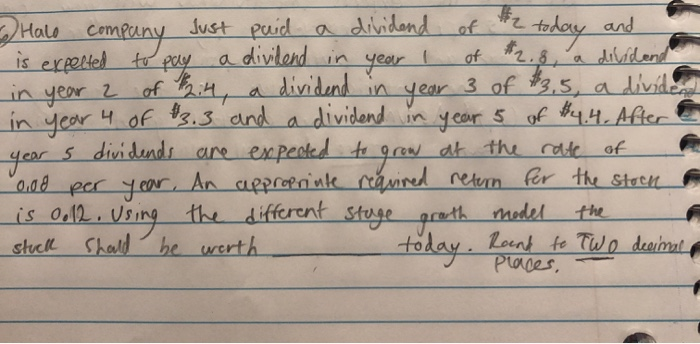 6) Halo company Just paid a dividend of $2 today and
is expected to pay a dividend in year 1 of $2.8, a dividend
in year 2 of $2.4, a dividend in year 3 of $3.5, a dividend
in year 4 of $3.3 and a dividend in year 5 of $4.4. After
year 5 dividends are expected to grow at the rate of
0.08 per year. An appropriate required return for the stock
is 0.12. Using the different stage growth model the
stock Should be worth ________ today. Round to TWO decimal
Places.